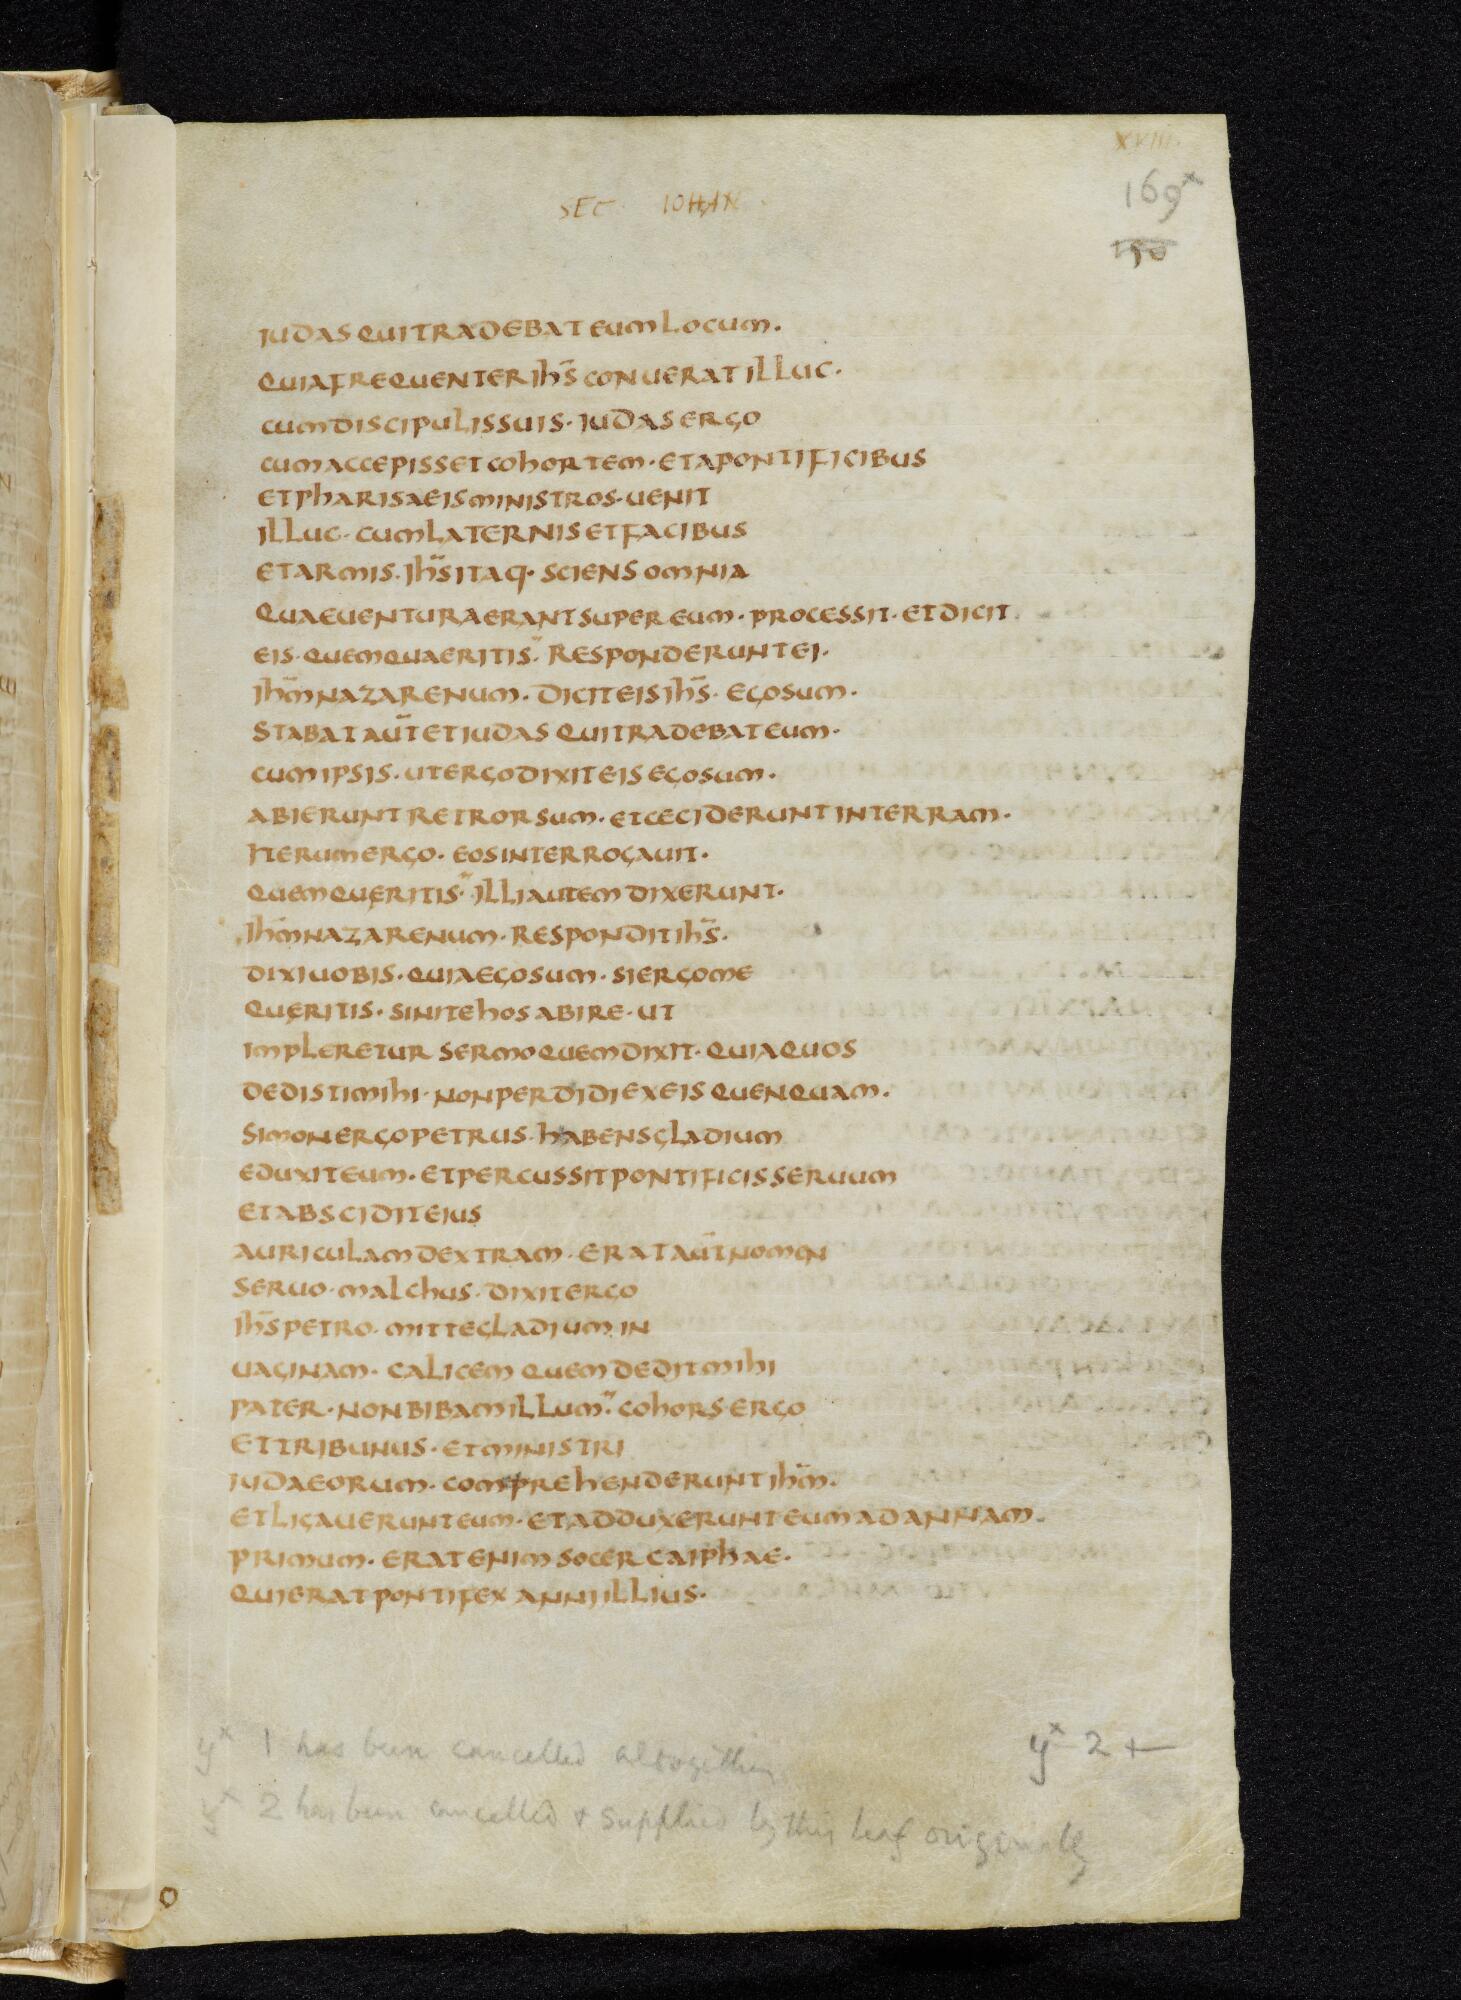 XVIII.
169x
150
SEC IOHAN
IUDAS QUI TRADEBAT EUM LOCUM·
QUIA FREQUENTER IHS̅ CONUERAT ILLUC·
CUM DISCIPULIS SUIS· IUDAS ERGO
CUM ACCEPISSET COHORTEM· ET A PONTIFICIBUS
ET PHARISAEIS MINISTROS· UENIT
ILLUC· CUM LATERNIS ET FACIBUS
ET ARMIS· IHS̅ ITAQ· SCIENS OMNIA
QUAE UENTURA ERANT SUPER EUM· PROCESSIT· ET DICIT
EIS· QUEM QUAERITIS· RESPONDERUNT EI·
IHM̅ NAZARENUM· DICIT EIS IHS̅· EGO SUM·
STABAT AUT̅ ET IUDAS QUI TRADEBAT EUM·
CUM IPSIS· UT ERGO DIXIT EIS EGO SUM·
ABIERUNT RETRORSUM· ET CECIDERUNT IN TERRAM·
ITERUM ERGO· EOS INTERROGAUIT·
QUEM QUĘRITIS· ILLI AUTEM DIXERUNT·
IHM̅ NAZARENUM· RESPONDIT IHS̅·
DIXI UOBIS· QUIA EGO SUM· SI ERGO ME
QUĘRITIS· SINITE HOS ABIRE· UT
IMPLERETUR SERMO QUEM DIXIT· QUIA QUOS
DEDISTI MIHI· NON PERDIDI EX EIS QUENQUAM·
SIMON ERGO PETRUS· HABENS GLADIUM
EDUXIT EUM· ET PERCUSSIT PONTIFICIS SERUUM
ET ABSCIDIT EIUS
AURICULAM DEXTRAM· ERAT AUT̅ NOMEN
SERUO· MALCHUS· DIXIT ERGO
IHS̅ PETRO· MITTE GLADIUM IN
UAGINAM· CALICEM QUEM DEDIT MIHI
PATER· NON BIBAM ILLUM· COHORS ERGO
ET TRIBUNUS· ET MINISTRI
IUDAEORUM· COMPREHENDERUNT IHM̅·
ET LIGAUERUNT EUM· ET ADDUXERUNT EUM AD ANNAM·
PRIMUM· ERAT ENIM SOCER CAIPHAE·
QUI ERAT PONTIFEX ANNI ILLIUS·
yx 1 has been cancelled altogether
yx 2 +
yx 2 has been cancelled & supplied by this leaf originally